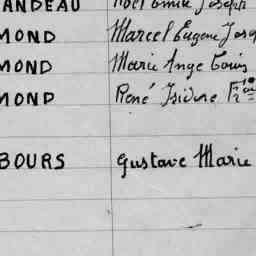 ANDEAU Noël Emile Joseph
MOND Marcel Eugene Josep
MOND Marie Ange Louis
MOND René Isidore Fçois
BOURS Gustave Marie